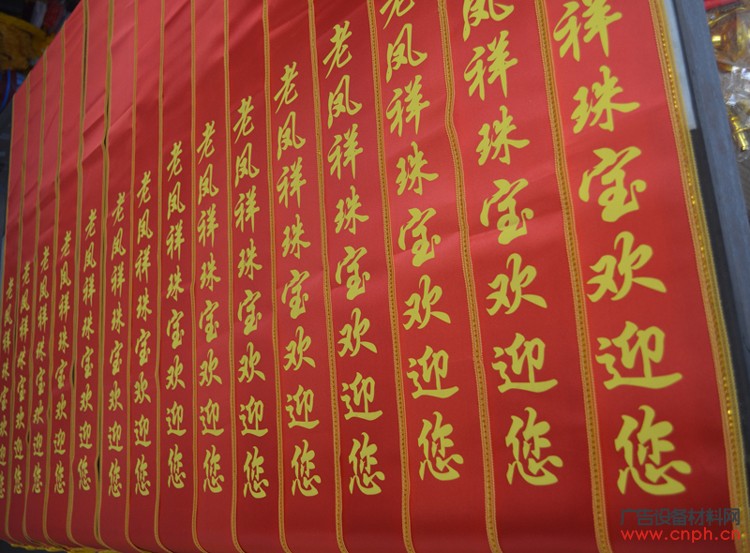 老凤祥珠宝欢迎您
老凤祥珠宝欢迎您
老凤祥珠宝欢迎您
老凤祥珠宝欢迎您
老凤祥珠宝欢迎您
老凤祥珠宝欢迎您
老凤祥珠宝欢迎您
老凤祥珠宝欢迎您
老凤祥珠宝欢迎您
老凤祥珠宝欢迎您
老凤祥珠宝欢迎您
老凤祥珠宝欢迎您
老凤祥珠宝欢迎您
凤祥珠宝欢迎您
祥珠宝欢迎您
广告设备材料网
www.cnph.cn